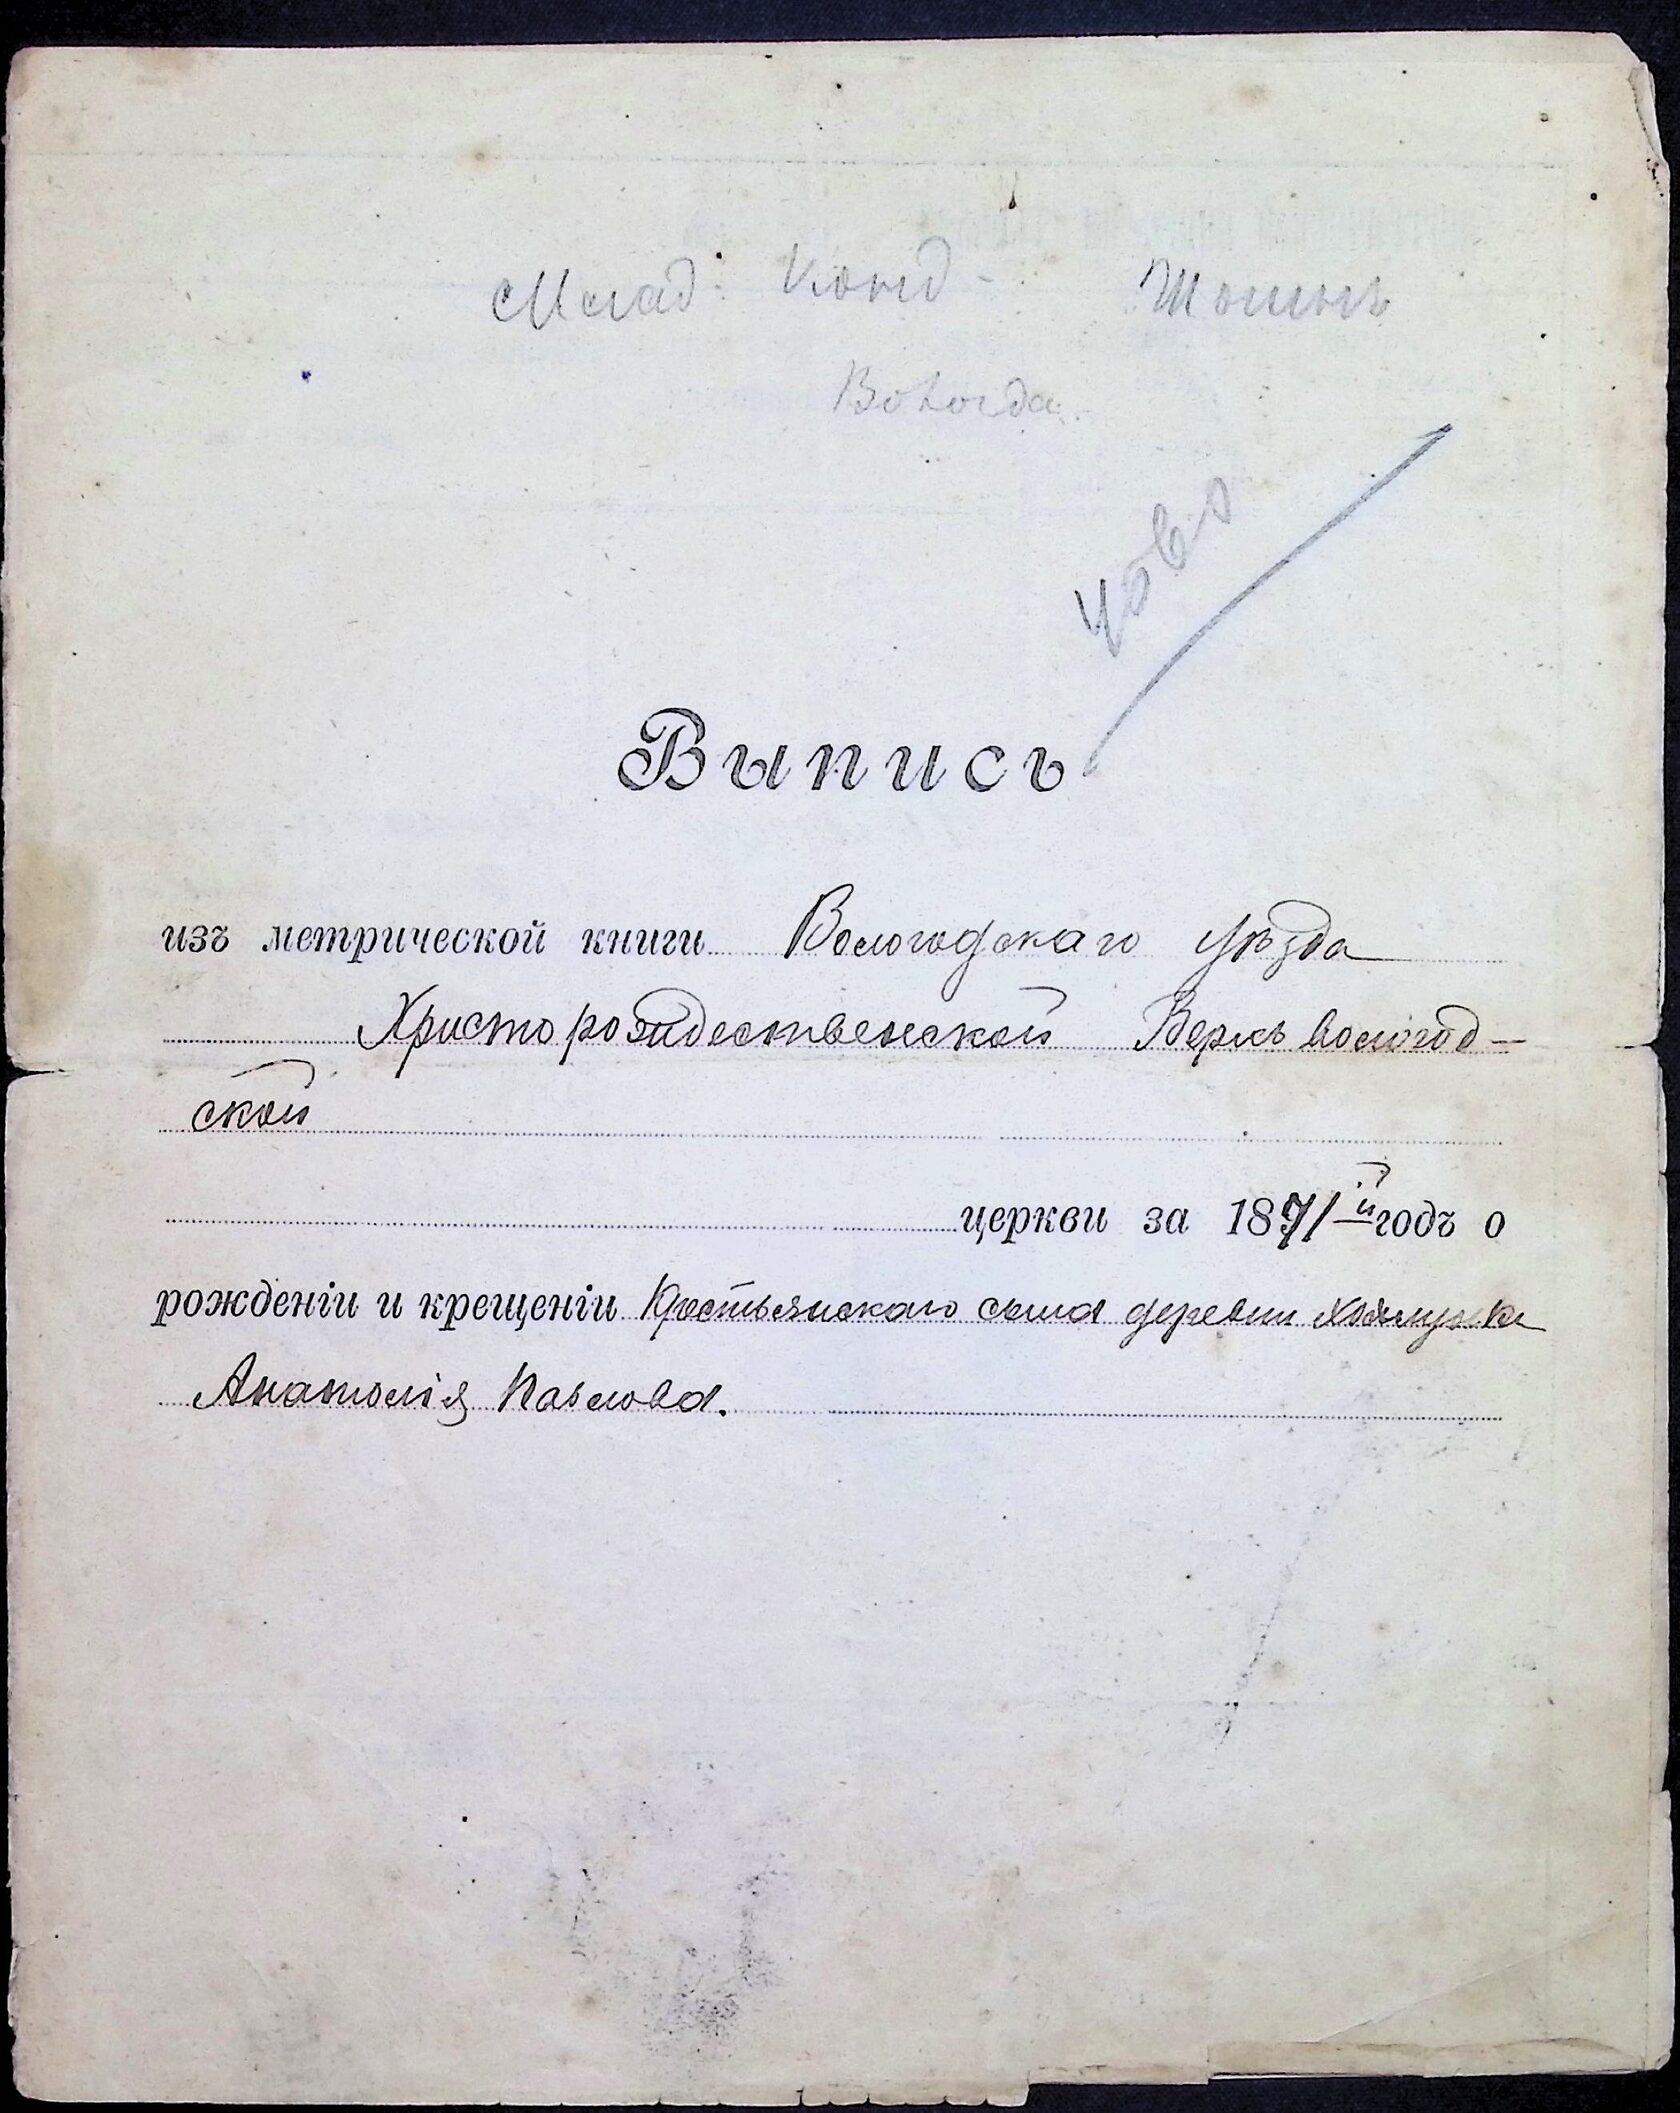 Млад. Конд. Шошинъ
Вологда
Выпись
изъ метрической книги Вологодскаго уѣзда
Христорождественской Верхвологод-
ской
церкви за 1871й годъ о
рожденіи и крещеніи Крестьянскаго сына деревни
Анатолія Павлова.